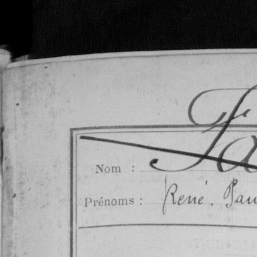 Nom :
Prénoms : René. Pau